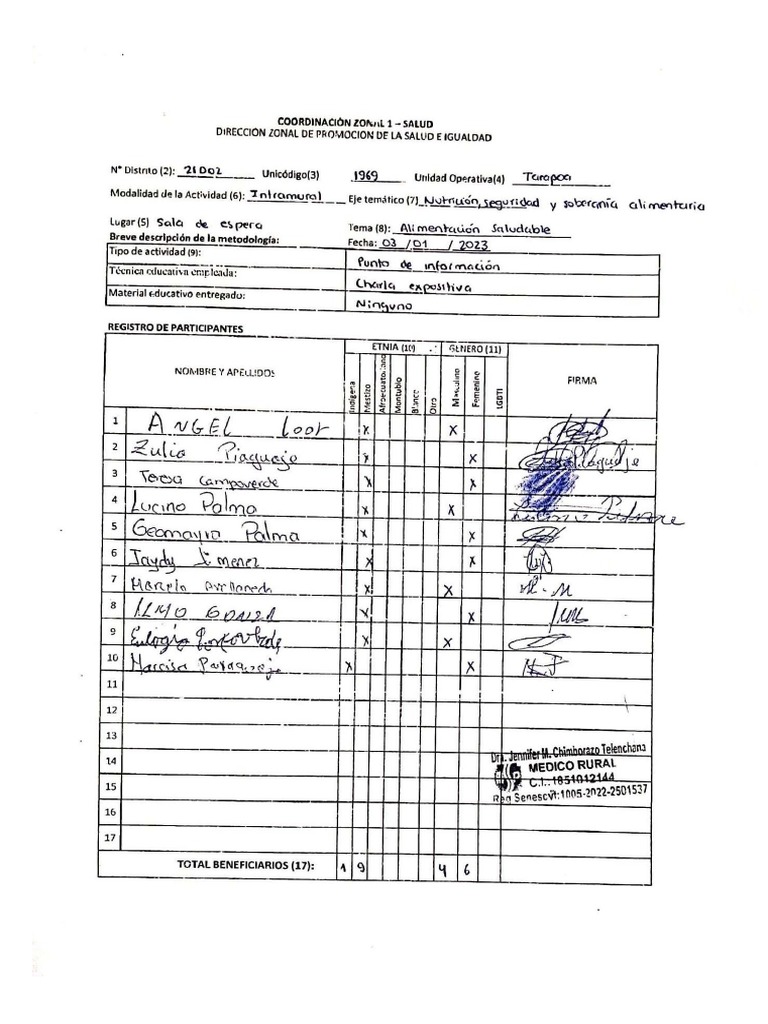 COORDINACIÓN ZONAL 1 – SALUD
DIRECCION ZONAL DE PROMOCION DE LA SALUD E IGUALDAD
N° Distrito (2): 21D02 Unicódigo(3) 1969 Unidad Operativa(4) Tarapoa
Modalidad de la Actividad (6): Intramural Eje temático (7) Nutrición, seguridad y soberanía alimentaria
Lugar (5) Sala de espera Tema (8): Alimentación Saludable
Breve descripción de la metodología: Fecha: 03 / 01 / 2023
Tipo de actividad (9): Punto de información
Técnica educativa empleada: Charla expositiva
Material educativo entregado: Ninguno
REGISTRO DE PARTICIPANTES
NOMBRE Y APELLIDOS ETNIA (10) GENERO (11) FIRMA
Indigena Mestizo Afroecuatoriano Montubio Blanco Otro Masculino Femenino LGBTI
1 ANGEL Loor x x
2 Zulia Piaguaje x x
3 Teresa Campoverde x x
4 Lucino Palma x x
5 Geomayra Palma x x
6 Jaydy Jimenez x x
7 x x M. M
8 x x
9 Eulogio x x
10 Narcisa x x
11
12
13
14
15
16
17
Dra. Jennifer M. Chimborazo Telenchana
MEDICO RURAL
C.I.: 1851012144
Reg Senescyt: 1005-2022-2501537
TOTAL BENEFICIARIOS (17): 1 9 4 6